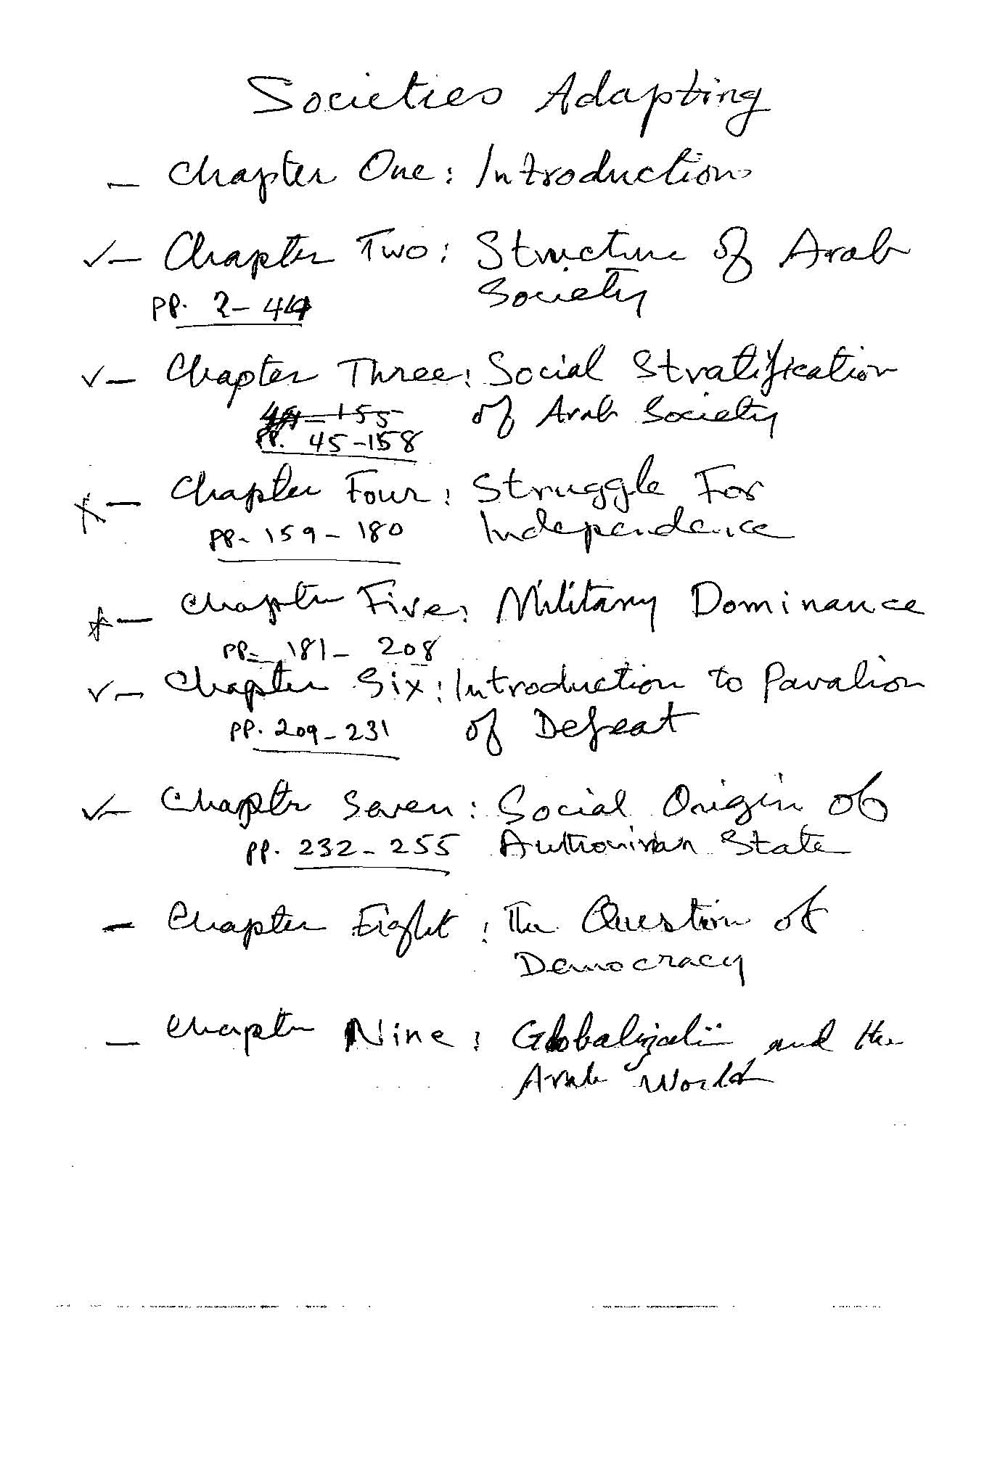 Societies Adapting
– Chapter One: Introduction
✓– Chapter Two: Structure of Arab
pp. 2-44 Society
✓– Chapter Three: Social Stratification
-155 of Arab Society
pp. 45-158
– Chapter Four: Struggle For
pp. 159-180 Independence
– Chapter Five: Military Dominance
pp. 181-208
✓– Chapter Six: Introduction to Pavalion
pp. 209-231 of Defeat
✓– Chapter Seven: Social Origin of
pp. 232-255 State
– Chapter Eight: The Question of
Democracy
– Chapter Nine: Globalization and the
Arab World